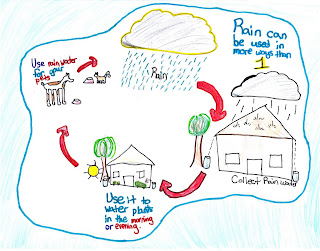 Rain can
be used in
more ways than
1
Rain
Collect Rain water
Use it to
water plants
in the morning
or evening.
Use rain water
for your
pets